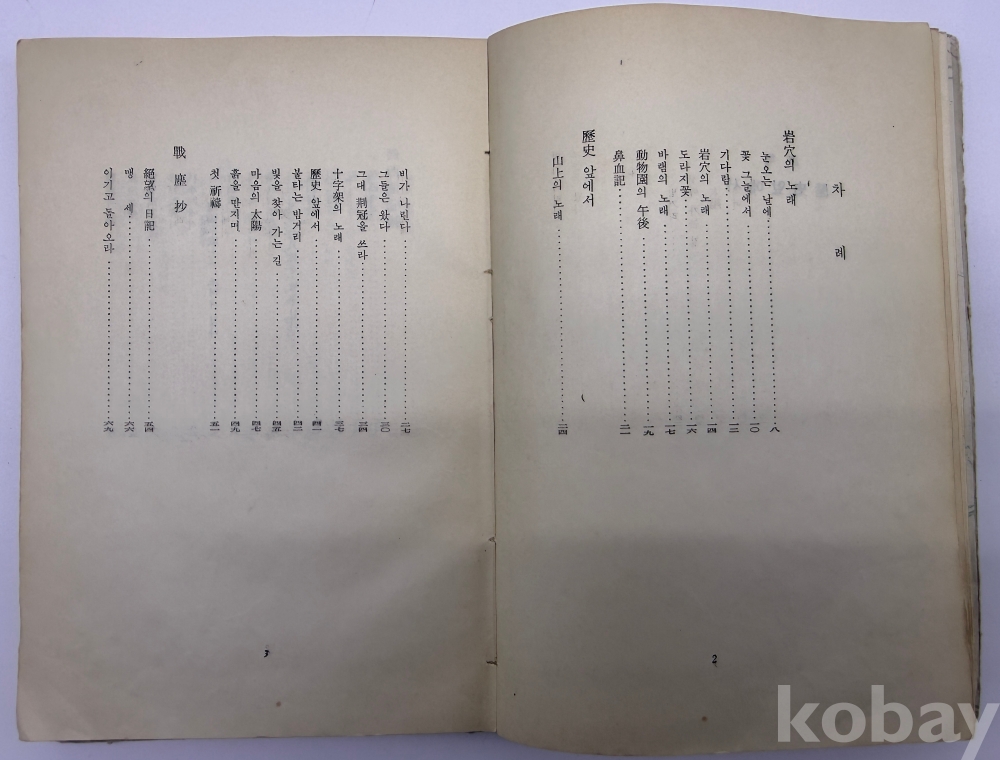 차 례
岩穴의 노래
눈오는 날에 八
꽃 그늘에서 一〇
기다림 一二
岩穴의 노래 一四
도라지꽃 一六
바램의 노래 一七
動物園의 午後 一九
鼻血記 二一
歷史 앞에서
山上의 노래 二四
2
비가 나린다 二七
그들은 왔다 三〇
그대 荆冠을 쓰라 三四
十字架의 노래 三七
歷史 앞에서 四一
불타는 밤거리 四二
빛을 찾아 가는 길 四五
마음의 太陽 四七
흙을 만지며 四九
첫 祈禱 五一
戰塵抄
絕望의 日記 五四
맹 세 六六
이기고 돌아오라 六九
3
kobay